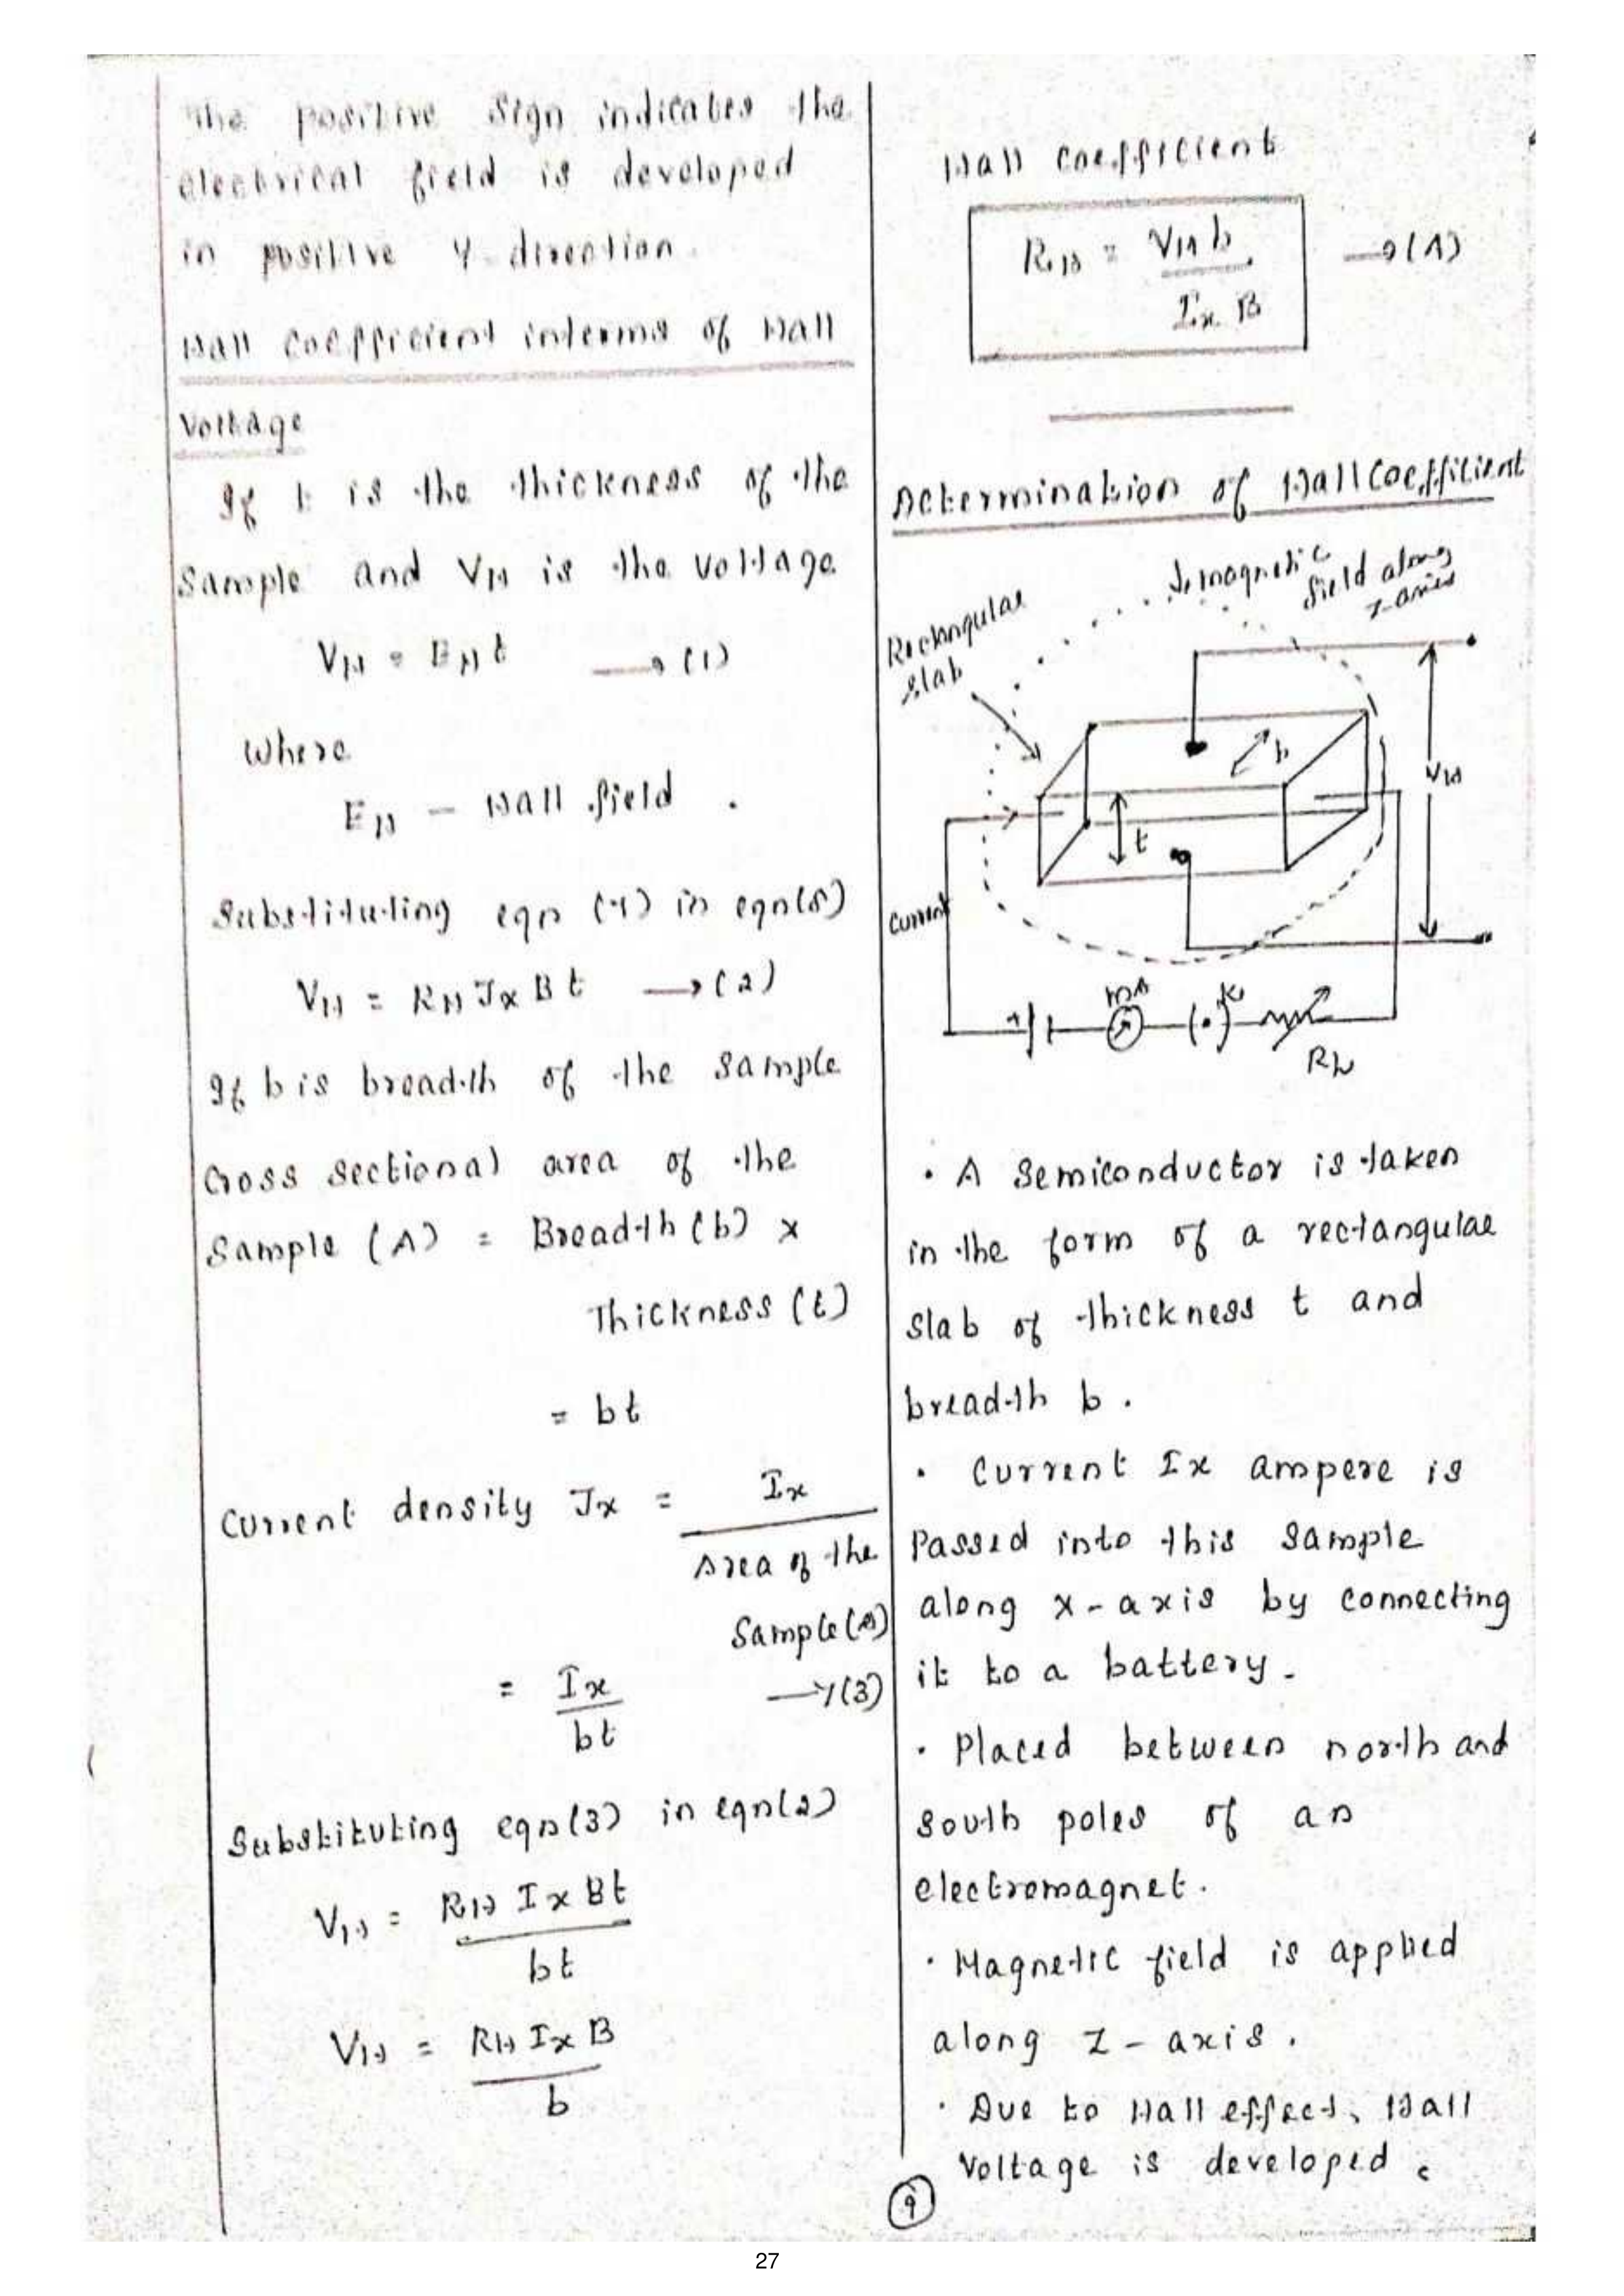 The positive sign indicates the
electrical field is developed
in positive Y direction.
Hall coefficient interms of Hall
Voltage
If t is the thickness of the
Sample and VH is the Voltage
VH = EH t → (1)
Where
EH - Hall field .
Substituting eqn (1) in eqn(5)
VH = RH Jx B t → (2)
If b is breadth of the sample
Cross sectional area of the
Sample (A) = Breadth (b) x
Thickness (t)
= bt
Current density Jx = Ix
Area of the
Sample (A)
= Ix → (3)
bt
Substituting eqn(3) in eqn(2)
VH = RH Ix Bt
bt
VH = RH Ix B
b
Hall coefficient
RH = VH b → (A)
Ix B
Determination of Hall Coefficient
magnetic
field along
z-axis
Rectangular
slab
b
VH
t
Current
mA
K
Rh
• A Semiconductor is taken
in the form of a rectangular
slab of thickness t and
breadth b .
• Current Ix ampere is
Passed into this sample
along x-axis by connecting
it to a battery.
• Placed between north and
south poles of an
electromagnet.
• Magnetic field is applied
along Z-axis .
• Due to Hall effect, Hall
Voltage is developed .
9
27